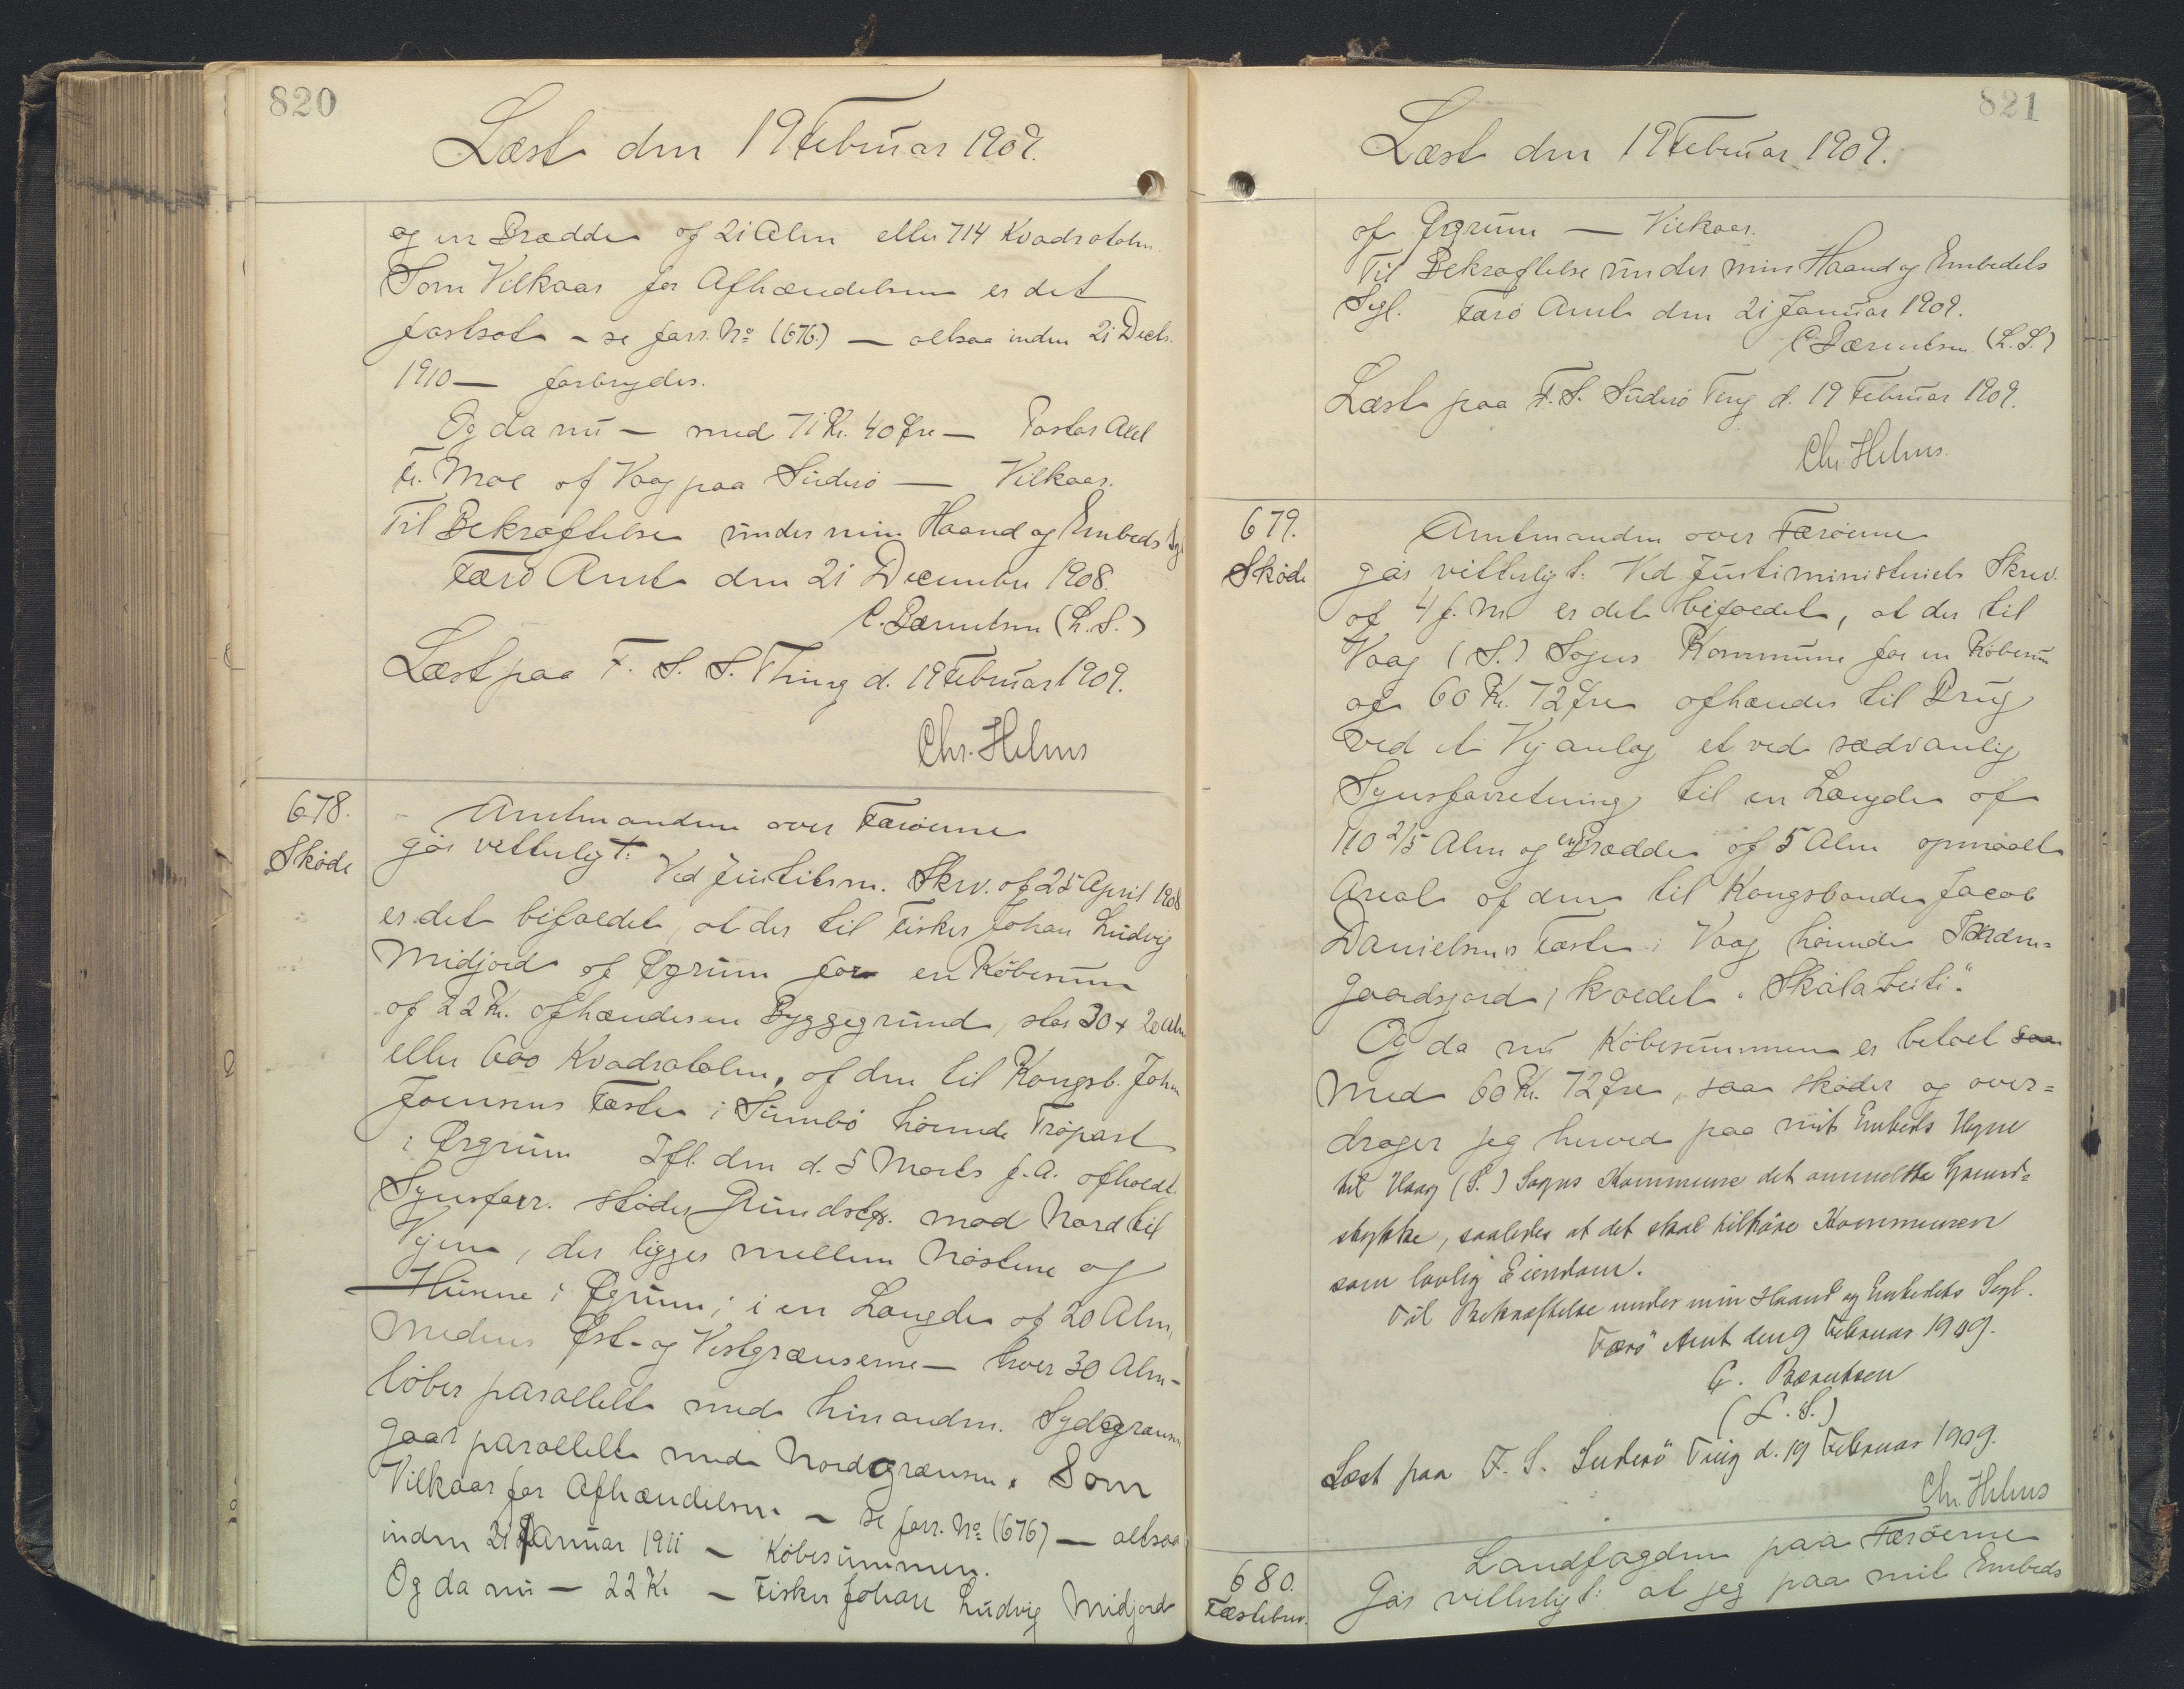 820
Læst den 19 Februar 1909.
og en Brædde af 21 Alen eller 714 Kvadratalen.
Som Vilkaar for Afhændelsen er det
fastsat - se forr. No (676.) - altsaa inden 21 Decbr.
1910 - forbrydes.
Og da nu - med 71 Kr. 40 Øre - Pastor Axel
Fr. Moe af Vaag paa Suderø - Vilkaar.
Til Bekræftelse under min Haand og Embeds Segl
Færø Amt den 21 December 1908.
C. Bærentsen (L.S.)
Læst paa F. S. S. Thing d. 19 Februar 1909.
Chr. Helms
678.
Skøde
Amtmanden over Færøerne
gør vitterligt:
Ved Justitsm. Skrv. af 25 April 1908
er det bifaldet, at der til Fisker Johan Ludvig
Midjord af Øgrum for en Købesum
af 22 Kr. afhændes en Byggegrund, stor 30 x 20 Alen
eller 600 Kvadratalen, af den til Kongsb. John
Joensens Fæste i Sumbø hørende Trøpart
i Ørgrum Ifl. den d. 5 Marts f.A. afholdt
Synsforr. støder Grundstk. mod Nord til
Vejen, der ligger mellem Nøstene og
Husene i Øgrum; i en Længde af 20 Alen,
medens Øst- og Vestgrænserne - hver 30 Alen -
løber parallelt med hinanden. Sydgrænsen
gaar parallelt med Nordgrænsen. Som
Vilkaar for Afhændelsen - se forr. No (676) - altsaa
inden 21 Januar 1911 - Købesummen.
Og da nu - 22 Kr - Fisker Johan Ludvig Midjord
821
Læst den 19 Februar 1909.
af Øgrum - Vilkaar.
Til Bekræftelse under min Haand og Embedets
Segl. Færø Amt den 21 Januar 1909.
C. Bærentsen (L.S.)
Læst paa F. S. Suderø Ting d. 19 Februar 1909.
Chr. Helms.
679.
Skøde
Amtmanden over Færøerne
gør vitterligt: Ved Justiministeriets Skrv.
af 4 f. M. er det bifaldet, at der til
Vaag (S.) Sogns Kommune for en Købesum
af 60 Kr. 72 Øre afhændes til Brug
ved et Vejanlæg et ved sædvanlig
Synsforretning til en Længde af
110 2/5 Alen og en Brædde af 5 Alen opmaalt
Areal af den til Kongsbonde Jacob
Danielsens Fæste i Vaag hørende
gaardsjord, kaldet "Skálatrøti".
Og da nu Købesummen er betalt saa
med 60 Kr. 72 Øre, saa skøder og over=
drager jeg herved paa mit Embeds Vegne
til Vaag (S.) Sogns Kommune det anmeldte Grund=
stykke, saaledes at det skal tilhøre Kommunen
som lovlig Eiendom.
Til Bekræftelse under min Haand og Embedets Segl.
Færö Amt den 9 Februar 1909.
C. Bærentsen
(L. S.)
Læst paa F. S. Suderö Ting d. 19 Februar 1909.
Chr. Helms
680.
Fæstebrev.
Landfogden paa Færøerne
Gør vitterligt: at jeg paa mit Embeds